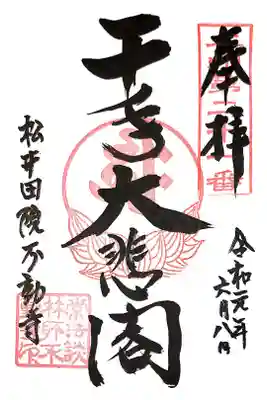 奉拝
令和元年
六月八日
千手大悲閣
松井田院不動寺